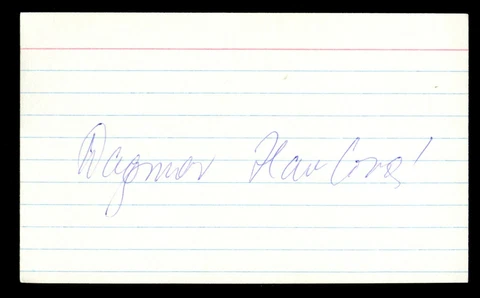 Dagmar Havlová